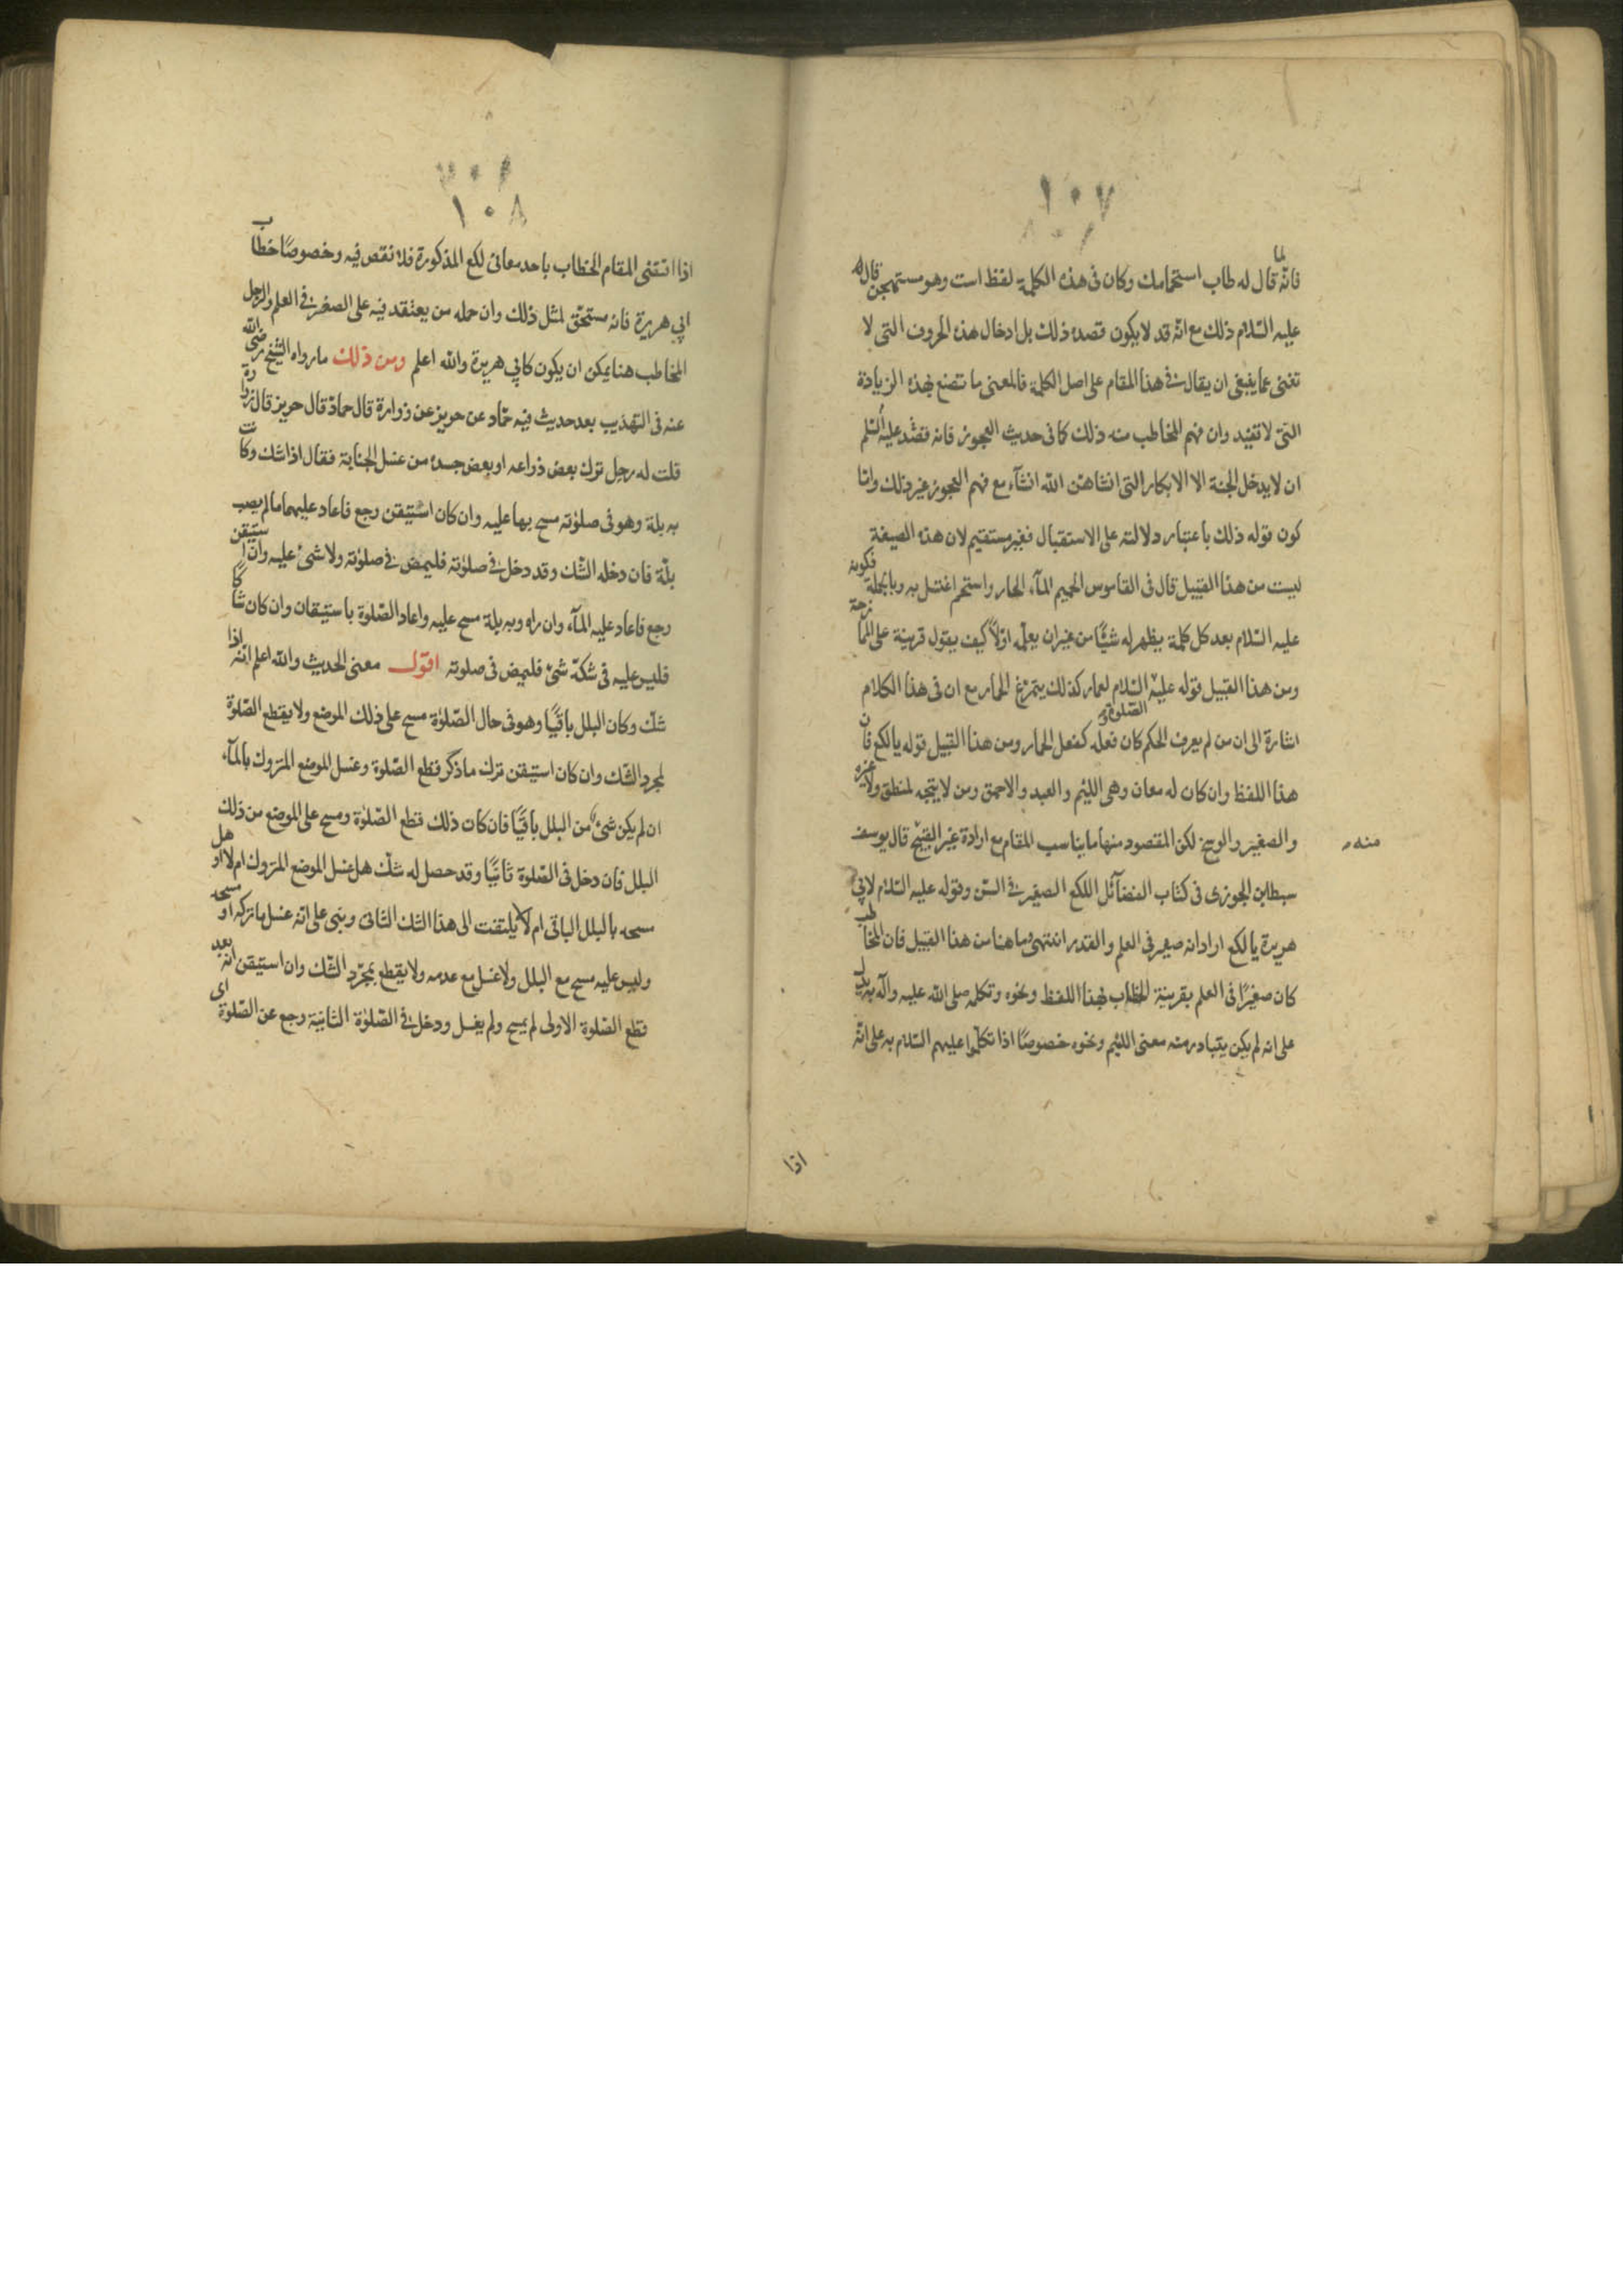 ١٠٧
فانه لما قال له طاب استحمامك وكان فى هذه الكلمة لفظ است وهو مستهجن قال له
عليه السّلام ذلك مع انه قد لا يكون قصده ذلك بل ادخال هذه الحروف التى لا
تغنى عما ينبغى ان يقال فى هذا المقام على اصل الكلمة فالمعنى ما تصنع بهذه الزيادة
التى لا تفيد وان فهم المخاطب منه ذلك كما فى حديث العجوز فانه قصد عليه السّلم
ان لا يدخل الجنة الا الابكار التى انشاهن الله انشآء مع فهم العجوز غير ذلك واما
كون قوله ذلك باعتبار دلالته على الاستقبال فغير مستقيم لان هذه الصيغة
ليست من هذا القبيل قال فى القاموس الحميم المآء الحار واستحم اغتسل به وبالجملة فكونه
عليه السّلام بعد كل كلمة يظهر له شيئًا من غير ان يعلمه اولاً كيف يقول قرينة على الممازحة
ومن هذا القبيل قوله عليه الصّلوة والسّلام لعمار كذلك يتمرغ الحمار مع ان فى هذا الكلام
اشارة الى ان من لم يعرف الحكم كان فعله كفعل الحمار ومن هذا القبيل قوله يا لكع فان
هذا اللفظ وان كان له معان وهى اللئيم والعبد والاحمق ومن لا يتجه لمنطق ولا غيره
والصغير والوسخ لكن المقصود منها ما يناسب المقام مع ارادة غير القبيح قال يوسف
منه
سبط ابن الجوزى فى كتاب الفضآئل اللكع الصغير فى السّن وقوله عليه السّلام لابى
هريرة يا لكع اراد انه صغير فى العلم والقدر انتهى وما هنا من هذا القبيل فان المخاطب
كان صغيرًا فى العلم بقرينة الخطاب بهذا اللفظ ونحوه وتكلمه صلى الله عليه وآله به يدل
على انه لم يكن يتبادر منه معنى اللئيم ونحوه خصوصًا اذا تكلموا عليهم السّلام به على انه
اذا
١٠٨
اذا اقتضى المقام الخطاب باحد معانى لكع المذكورة فلا نقص فيه وخصوصًا خطاب
ابي هريرة فانه مستحق لمثل ذلك وان حمله من يعتقد فيه على الصغر فى العلم والرجل
المخاطب هنا يمكن ان يكون كابي هريرة والله اعلم ومن ذلك ما رواه الشيخ رضى الله
عنه فى التهذيب بعد حديث فيه حمّاد عن حريز عن زرارة قال حماد قال حريز قال زرارة
قلت له رجل ترك بعض ذراعه او بعض جسده من غسل الجنابة فقال اذا شك وكانت
به بلة وهو فى صلوته مسح بها عليه وان كان استيقن رجع فاعاد عليهما ما لم يصب
بلّة فان دخله الشك وقد دخل فى صلوته فليمض فى صلوته ولا شئ عليه وان استيقن
رجع فاعاد عليه المآء وان راه وبه بلة مسح عليه واعاد الصّلوة باستيقان وان كان شاكًا
فليس عليه فى شكه شئ فليمض فى صلوته اقول معنى الحديث والله اعلم انه اذا
شكّ وكان البلل باقيًا وهو فى حال الصّلوة مسح على ذلك الموضع ولا يقطع الصّلوة
لمجرد الشك وان كان استيقن ترك ما ذكر قطع الصّلوة وغسل الموضع المتروك بالمآء
ان لم يكن شئ من البلل باقيًا فان كان ذلك قطع الصّلوة ومسح على الموضع من ذلك
البلل فان دخل فى الصّلوة ثانيًا وقد حصل له شكّ هل غسل الموضع المتروك ام لا او هل
مسحه بالبلل الباقى ام لا لا يلتفت الى هذا الشك الثانى وبنى على انه غسل ما تركه او مسحه
وليس عليه مسح مع البلل ولا غسل مع عدمه ولا يقطع بمجرّد الشّك وان استيقن انه بعد
قطع الصّلوة الاولى لم يمسح ولم يغسل ودخل فى الصّلوة الثانية رجع عن الصّلوة اى